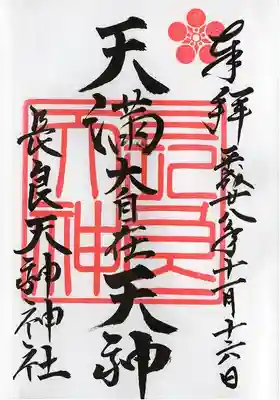 奉拝
平成廿八年十一月十六日
天満大自在天神
長良天神神社
長良天神